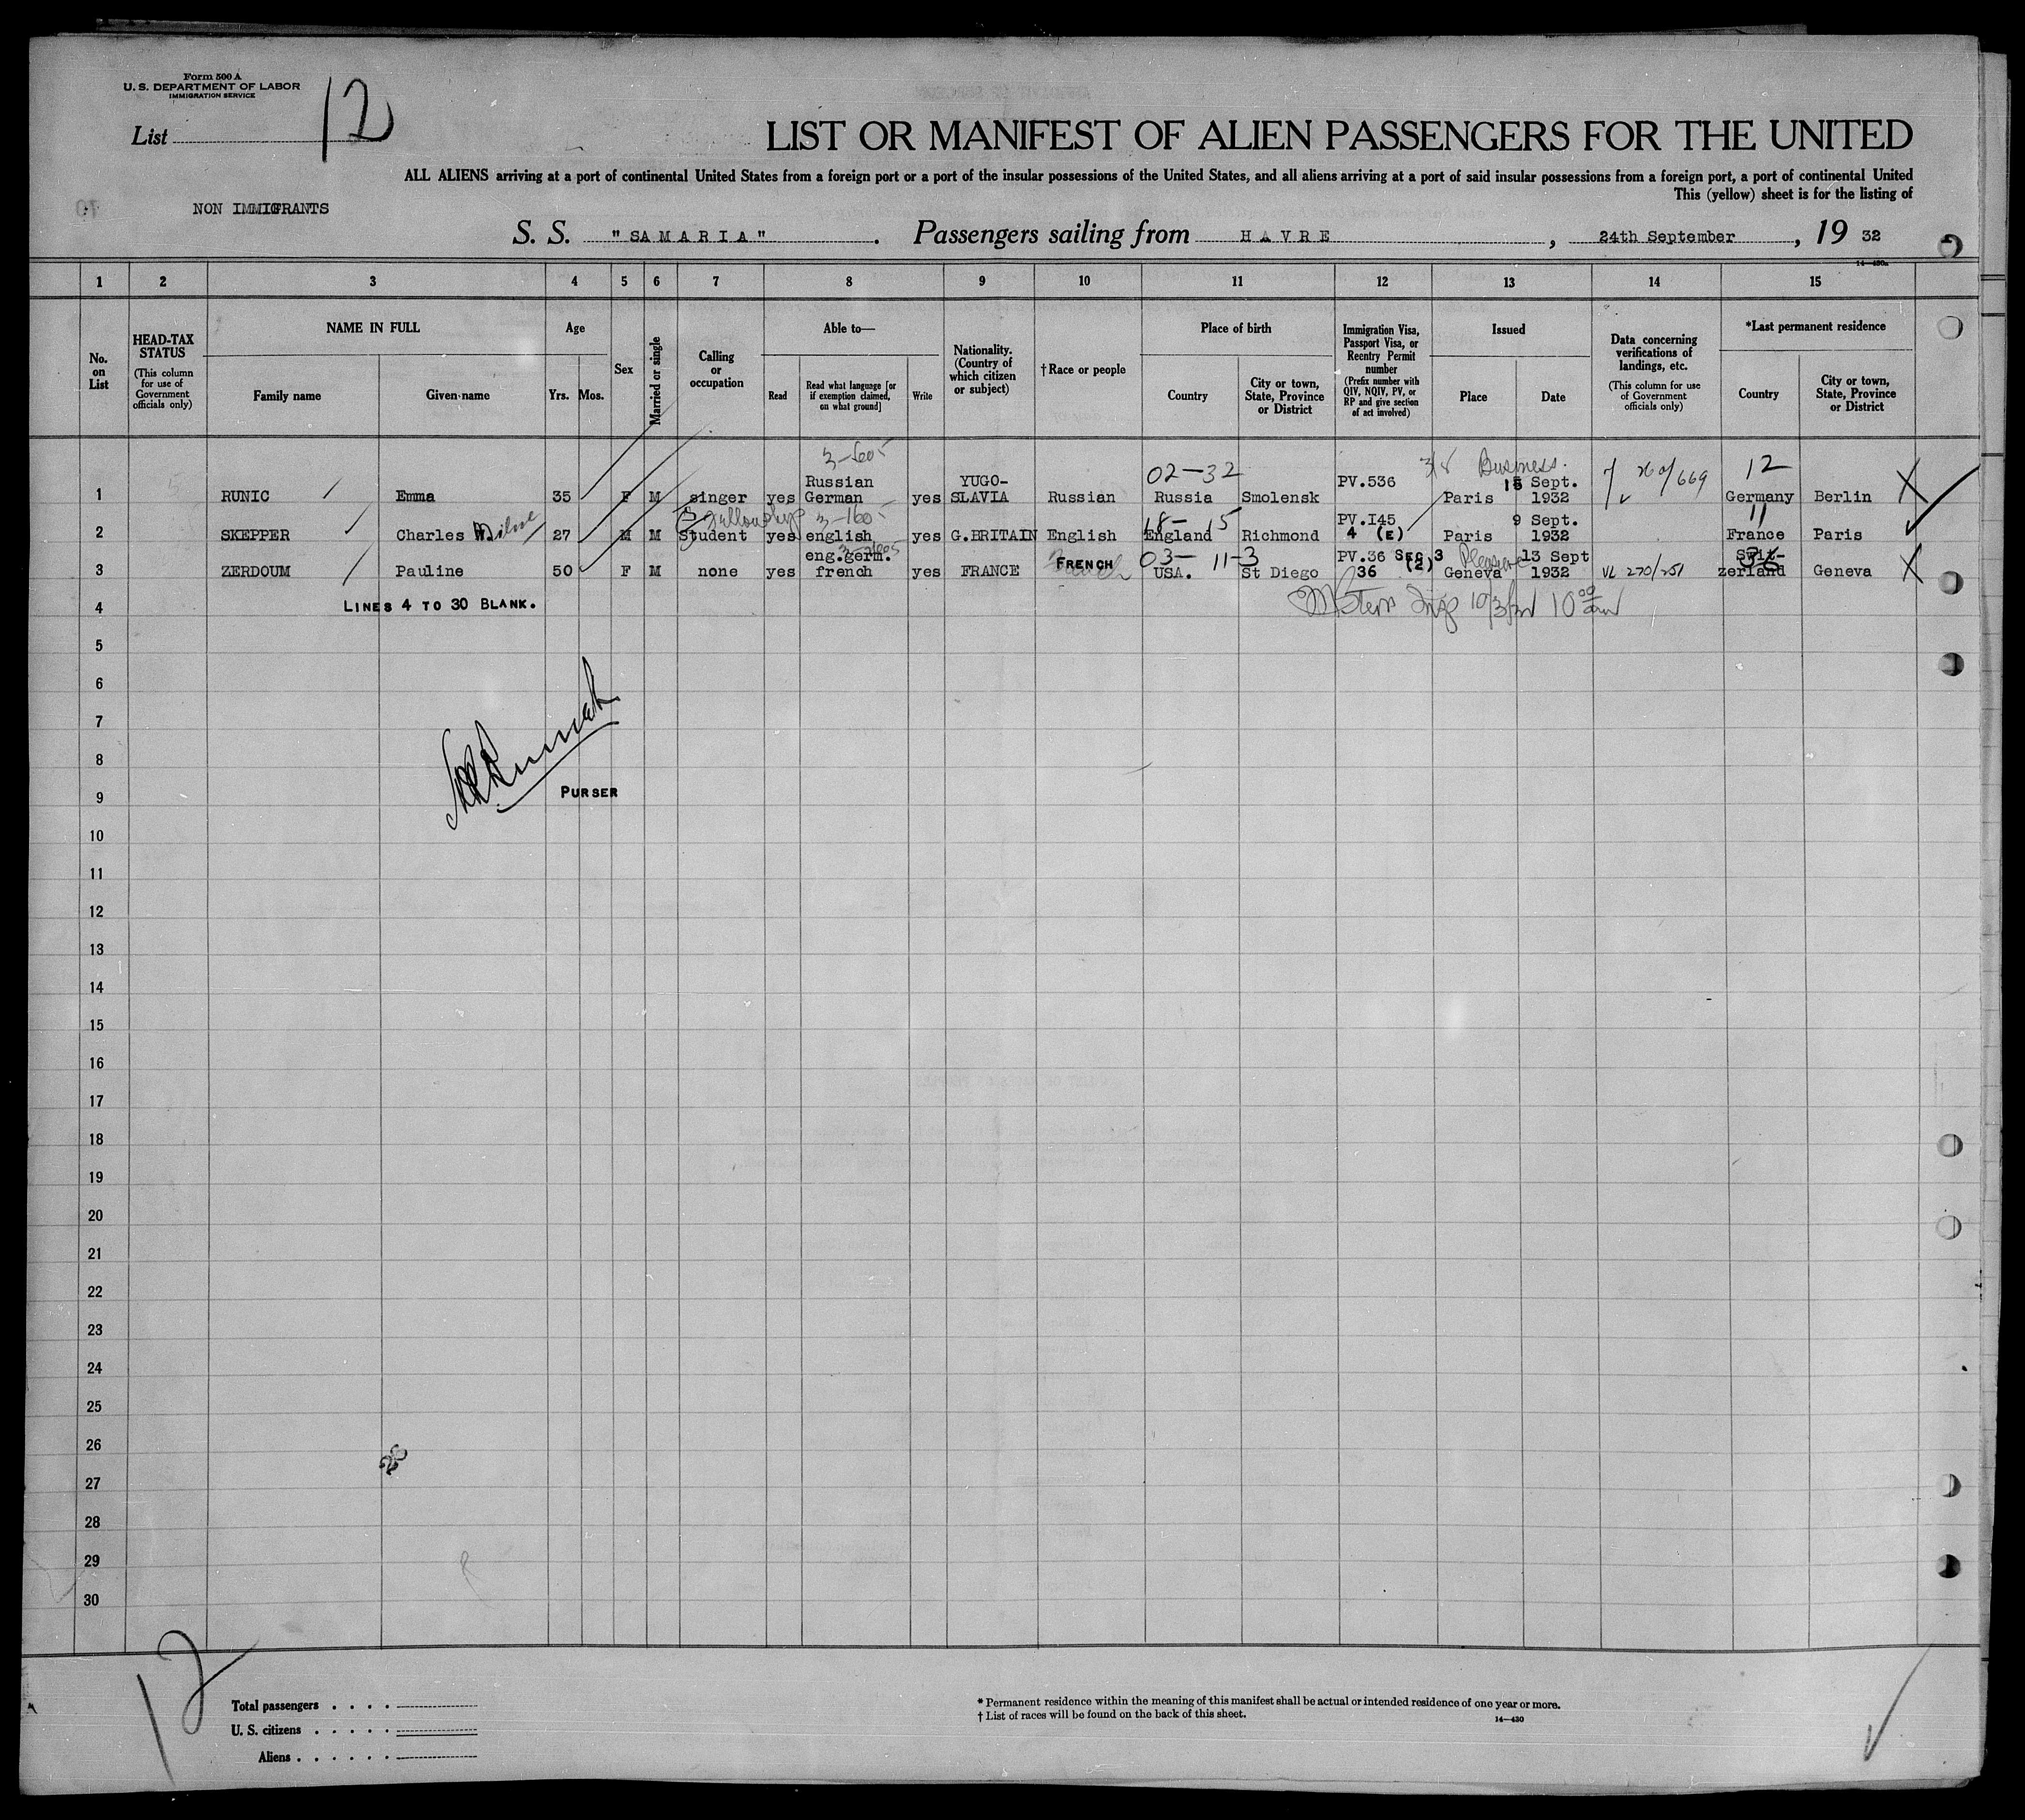 Form 500 A
U. S. DEPARTMENT OF LABOR
IMMIGRATION SERVICE
List 12
LIST OR MANIFEST OF ALIEN PASSENGERS FOR THE UNITED
ALL ALIENS arriving at a port of continental United States from a foreign port or a port of the insular possessions of the United States, and all aliens arriving at a port of said insular possessions from a foreign port, a port of continental United
This (yellow) sheet is for the listing of
NON IMMIGRANTS
S. S. "SAMARIA". Passengers sailing from HAVRE, 24th September, 19 32
14—430a
1 2 3 4 5 6 7 8 9 10 11 12 13 14 15
No. on List
HEAD-TAX STATUS
(This column for use of Government officials only)
NAME IN FULL
Family name
Given name
Age
Yrs. Mos.
Sex
Married or single
Calling or occupation
Able to—
Read
Read what language [or if exemption claimed, on what ground]
Write
Nationality. (Country of which citizen or subject)
†Race or people
Place of birth
Country
City or town, State, Province or District
Immigration Visa, Passport Visa, or Reentry Permit number
(Prefix number with QIV, NQIV, PV, or RP and give section of act involved)
Issued
Place
Date
Data concerning verifications of landings, etc.
(This column for use of Government officials only)
*Last permanent residence
Country
City or town, State, Province or District
3-605 02-32 3/8 Business. 12
1 RUNIC Emma 35 F M singer yes Russian German yes YUGO-SLAVIA Russian Russia Smolensk PV.536 Paris 15 Sept. 1932 260/669 Germany Berlin
Fellowship 3-1605 18- 15 11
2 SKEPPER Charles Milne 27 M M Student yes english yes G.BRITAIN English England Richmond PV.I45 4 (E) Paris 9 Sept. 1932 France Paris
03- 11-3 Pleasure
3 ZERDOUM Pauline 50 F M none yes eng.germ. french yes FRANCE FRENCH USA. St Diego PV.36 SEC 3 (2) 36 Geneva 13 Sept 1932 VL 270/251 Swit-zerland Geneva
4 LINES 4 TO 30 BLANK.
5
6
7
8
9 PURSER
10
11
12
13
14
15
16
17
18
19
20
21
22
23
24
25
26
27
28
29
30
12
Total passengers . . . .
U. S. citizens . . . . .
Aliens . . . . . .
* Permanent residence within the meaning of this manifest shall be actual or intended residence of one year or more.
† List of races will be found on the back of this sheet.
14—430